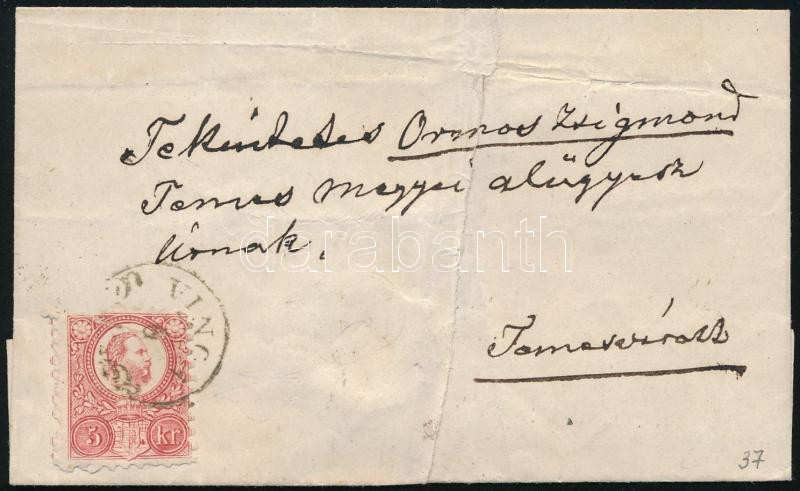 Tekintetes Ormos Zsigmond
Temes megyei alügyész
Úrnak.
Temesvárott
VING
5 kr
37
darabanth